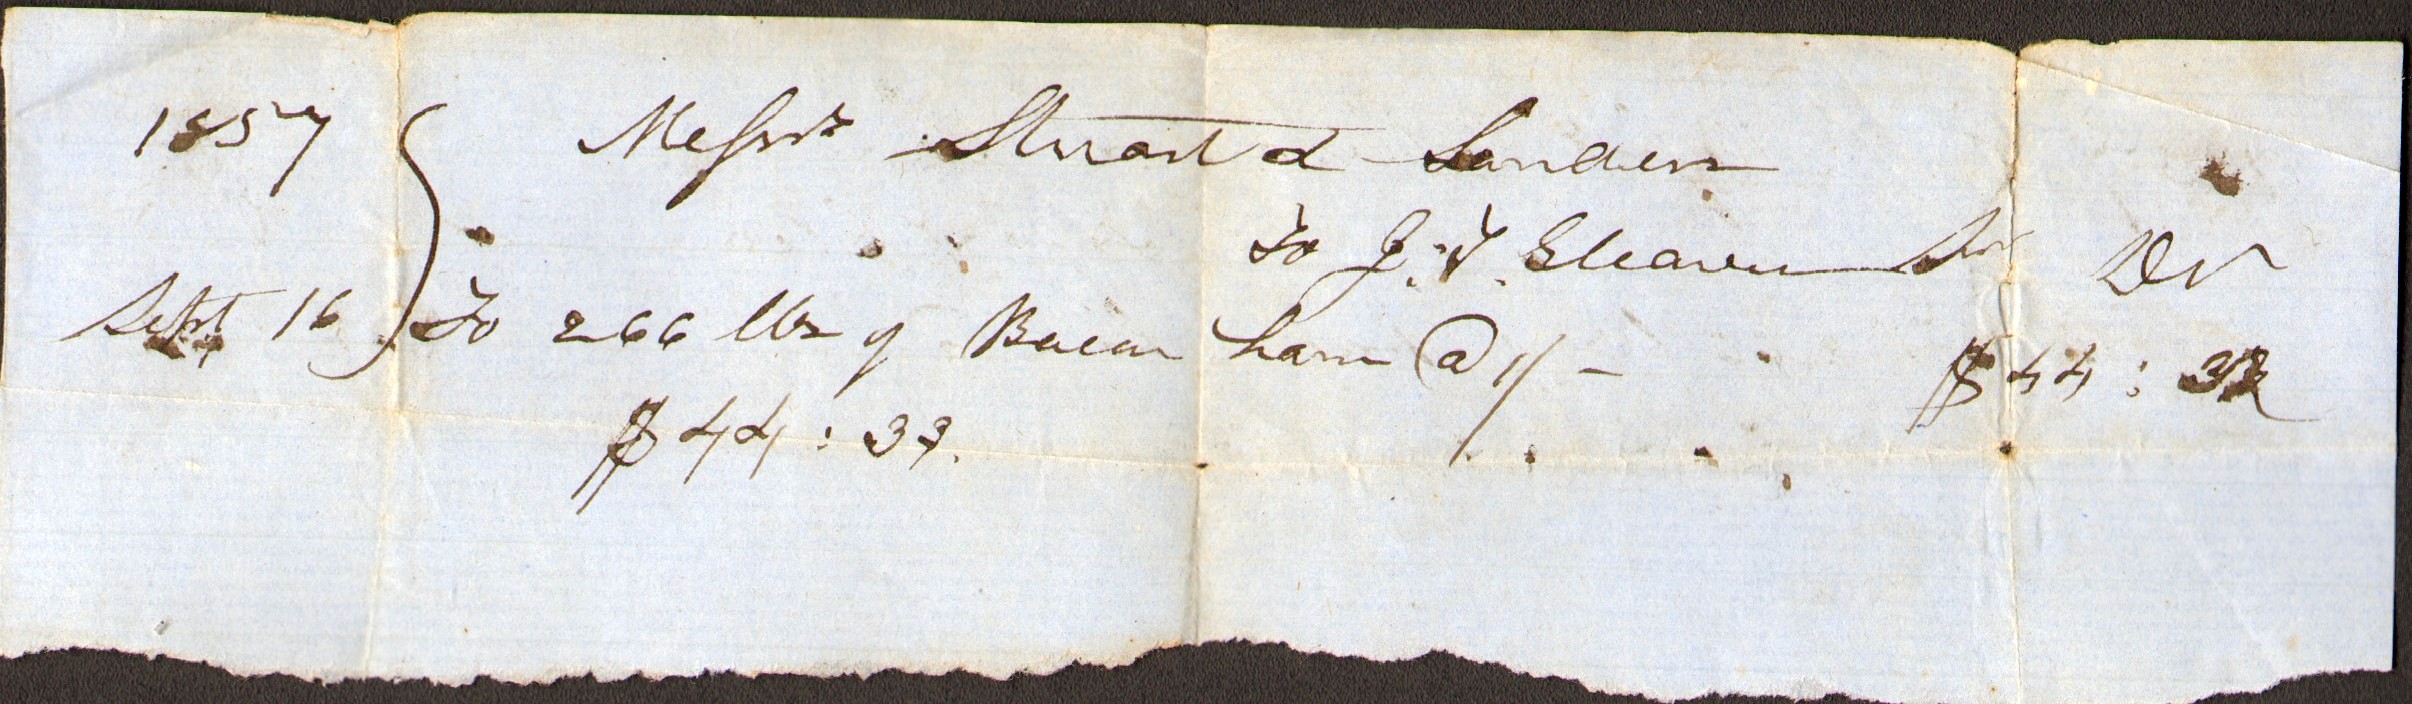 1857 Messrs Stuart & Sanders
To J. T. Cleaver Sr Dr
Sept 16 To 266 lbs of Bacon ham @ 1/- $44:33
$44:33.